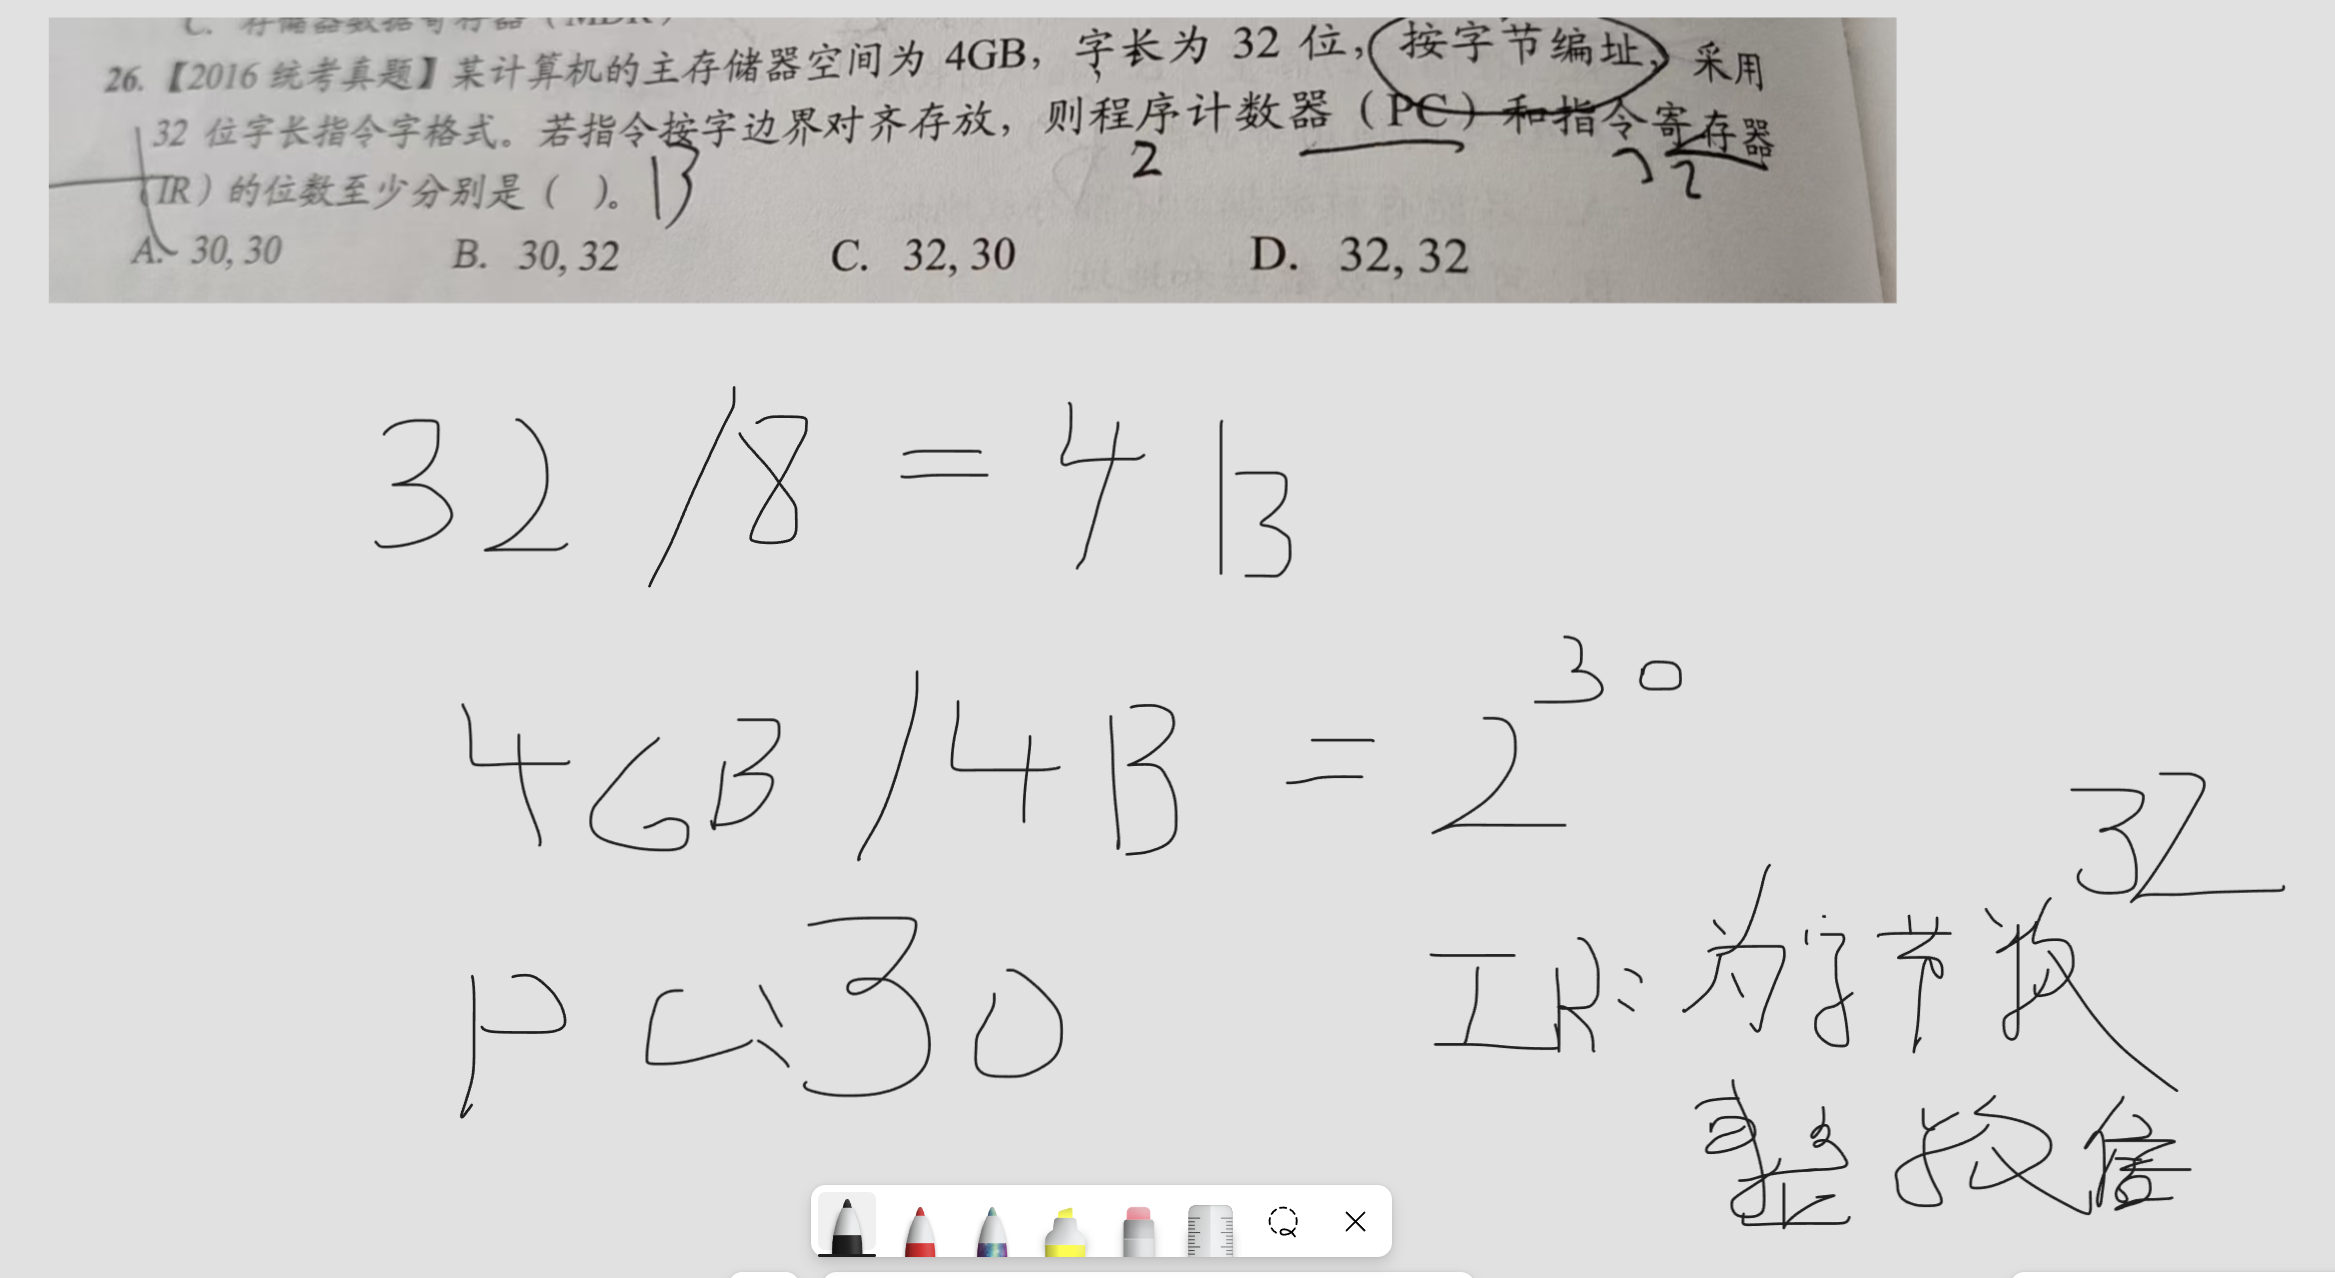 C. 存储器数据寄存器（MDR）
26.【2016 统考真题】某计算机的主存储器空间为 4GB，字长为 32 位，按字节编址，采用
32 位字长指令字格式。若指令按字边界对齐存放，则程序计数器（PC）和指令寄存器
（IR）的位数至少分别是（ ）。
A. 30, 30 B. 30, 32 C. 32, 30 D. 32, 32
32/8=4B
4GB/4B=2^30
PC:30
32
IR:为字节数
整数倍